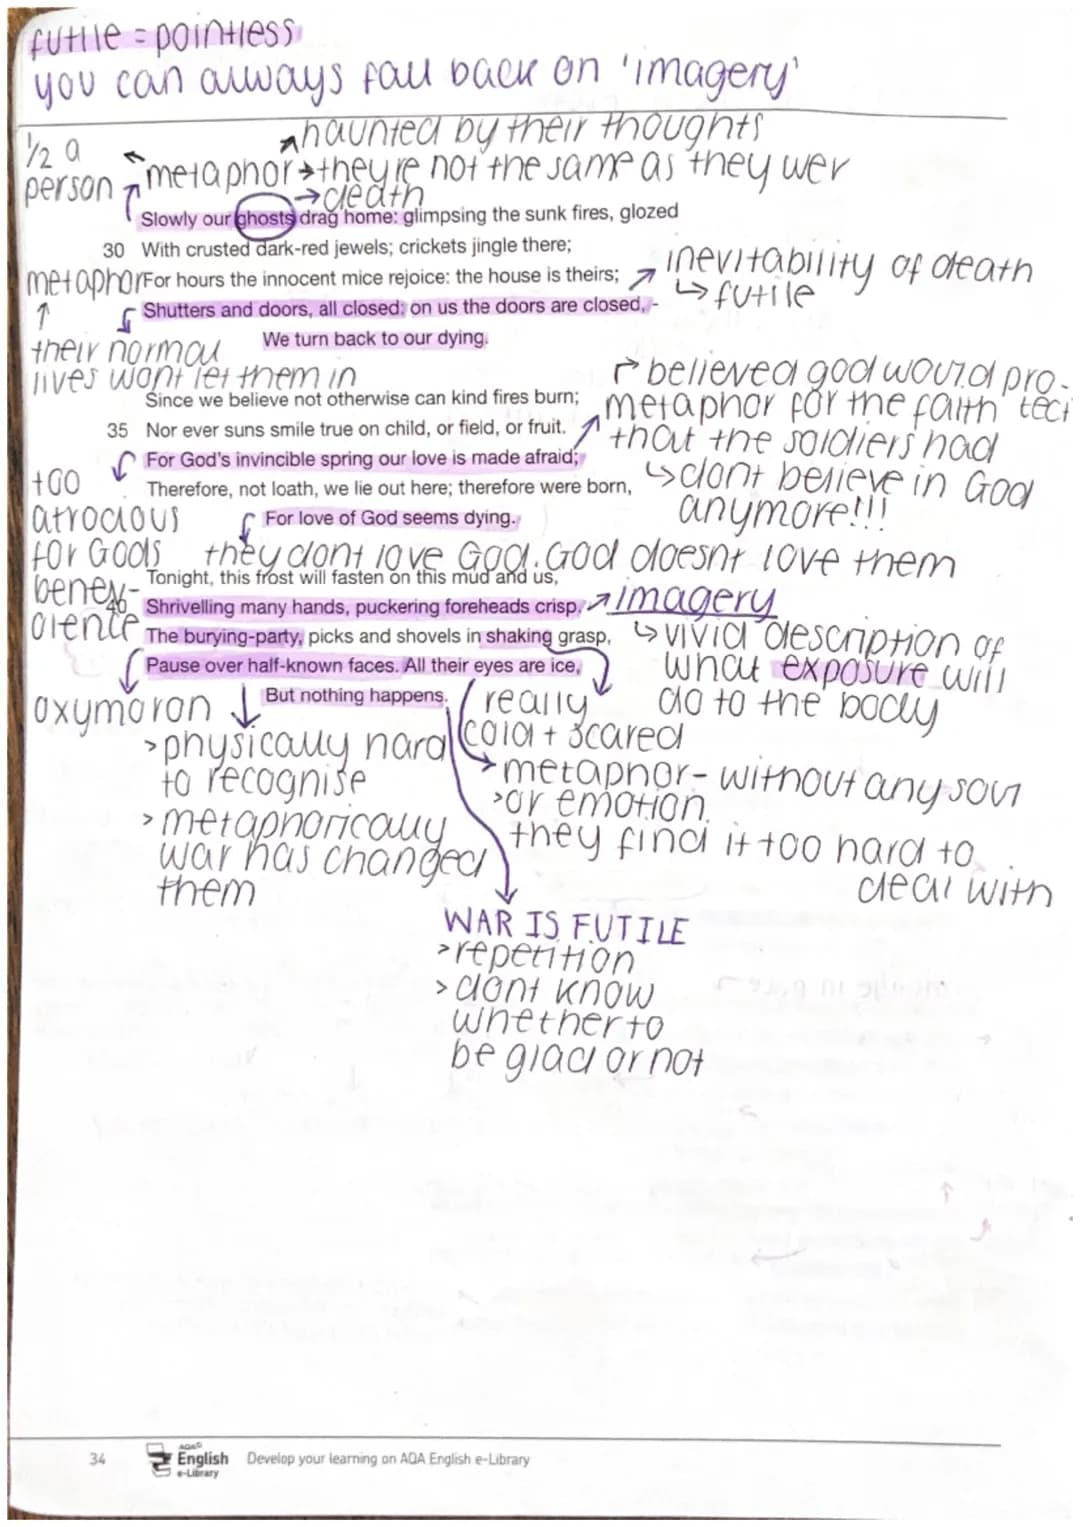 futile = pointless
you can always fall back on 'imagery'
haunted by their thoughts
1/2 a
person
metaphor → they're not the same as they wer
→ death
Slowly our ghosts drag home: glimpsing the sunk fires, glozed
30 With crusted dark-red jewels; crickets jingle there;
metaphor
For hours the innocent mice rejoice: the house is theirs;
inevitability of death
↳ futile
Shutters and doors, all closed: on us the doors are closed, -
We turn back to our dying.
their normal
lives wont let them in
believed god would pro-
tect
Since we believe not otherwise can kind fires burn;
metaphor for the faith
that the soldiers had
35 Nor ever suns smile true on child, or field, or fruit.
For God's invincible spring our love is made afraid;
↳ dont believe in God
anymore!!!
Therefore, not loath, we lie out here; therefore were born,
For love of God seems dying.
too
atrocious
for Gods
benev-
olence
they dont love God. God doesnt love them
Tonight, this frost will fasten on this mud and us,
40 Shrivelling many hands, puckering foreheads crisp.
imagery
↳ vivid description of
what exposure will
do to the body
The burying-party, picks and shovels in shaking grasp,
Pause over half-known faces. All their eyes are ice,
But nothing happens.
oxymoron
> physically hard
to recognise
> metaphorically
war has changed
them
really
cold + scared
metaphor - without any soul
> or emotion.
they find it too hard to
deal with
WAR IS FUTILE
> repetition
> dont know
whether to
be glad or not
34
AQA
English
e-Library
Develop your learning on AQA English e-Library